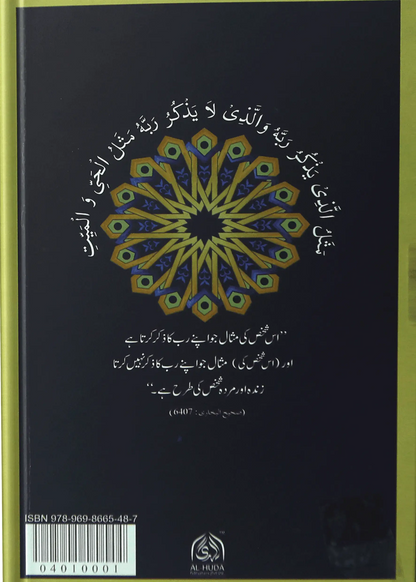 مَثَلُ الَّذِىْ يَذْكُرُ رَبَّهُ وَالَّذِىْ لَا يَذْكُرُ رَبَّهُ مَثَلُ الْحَيِّ وَ الْمَيِّتِ
”اس شخص کی مثال جو اپنے رب کا ذکر کرتا ہے
اور (اس شخص کی) مثال جو اپنے رب کا ذکر نہیں کرتا
زندہ اور مردہ شخص کی طرح ہے۔“
(صحيح البخارى: 6407)
ISBN 978-969-8665-48-7
04010001
AL-HUDA